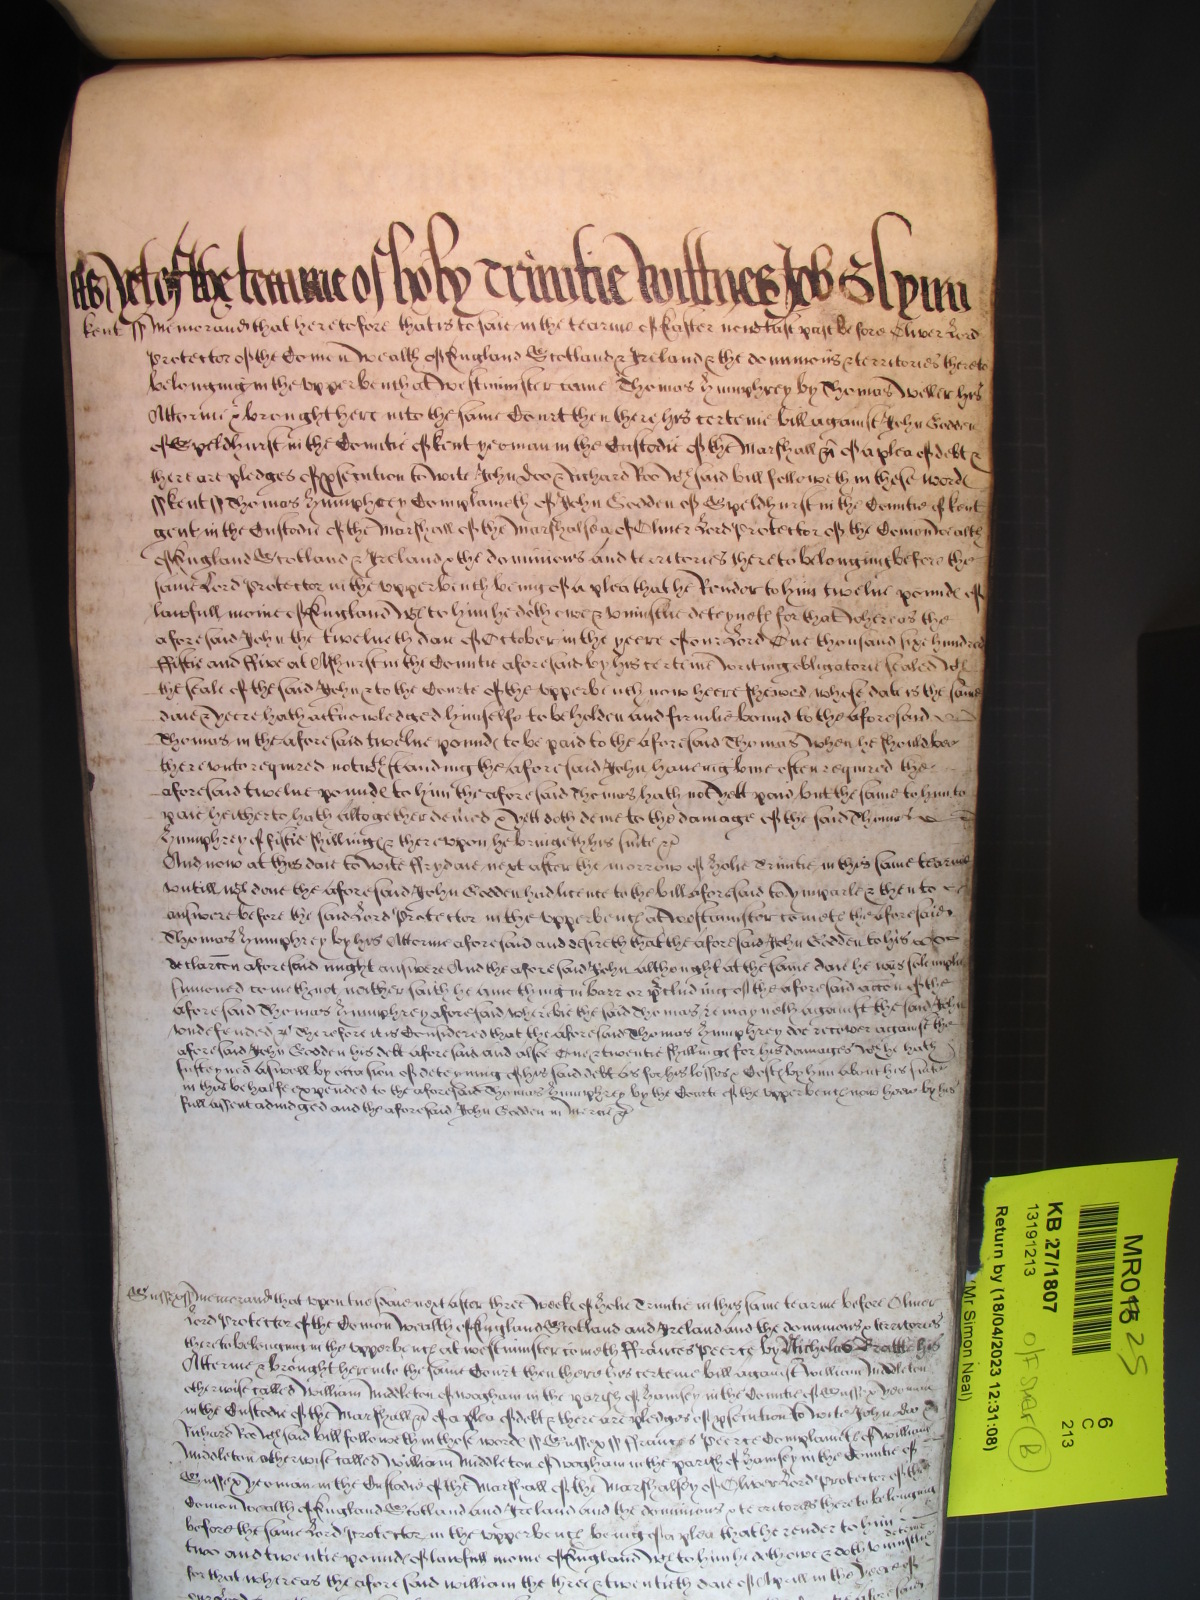 As Yet of the tearme of holy Trinitie Wittnes Job Glynn
Kent ss Memorand that heretofore that is to saie in the tearme of Easter now last past before Oliver Lord
Protector of the Comon Wealth of England Scotland & Ireland & the dominions & territories thereto
belonging in the upper bench at Westminister came Thomas Humphrey by Thomas Weller his
Attornie & brought here into the same Court then there his certeine bill against John Godden
of Speldhurst in the Countie of Kent yeoman in the Custodie of the Marshall &c of a plea of debt &
there are pledges of psecution to wite John Doo & Richard Roo Wch said bill followeth in these word
ss Kent ss Thomas Humphrey Complaineth of John Godden of Speldhurst in the Countie of Kent
gent in the Custodie of the Marshall of the Marshalsea of Oliver Lord Protector of the Comonwealth
of England Scotland & Ireland & the dominions and territories thereto belonging before the
same Lord Protector in the upper bench being of a plea that he Render to him twelve pound of
lawfull monie of England Wch to him he doth owe & uniustlie deteyneth for that Whereas the
aforesaid John the twelueth daie of October in the yeere of our Lord One thousand sixe hundred
fiftie and five at Ashurst in the Countie aforesaid by his certeine writing obligatorie sealed Wth
the seale of the said John & to the Courte of the upper bench now heere shewed whose date is the same
daie & yeere hath acknowledged himselfe to be holden and firmlie bound to the aforesaid
Thomas in the aforesaid twelve pound to be paid to the aforesaid Thomas when he should bee
thereunto required notwthstanding the aforesaid John haveing bine often required the
aforesaid twelve pound to him the aforesaid Thomas hath not yett paid but the same to him to
paie heitherto hath altogether denied & yett doth denie to the damage of the said Thomas
Humphrey of fiftie shillings & thereupon he bringeth his suite &c
And now at this daie to wite Frydaie next after the morrow of Holie Trinitie in this same tearme
untill wch daie the aforesaid John Godden had licence to the bill aforesaid to Imparle & then to
answere before the said Lord Protector in the upper bench at Westminster cometh the aforesaid
Thomas Humphrey by his Attornie aforesaid and desireth that the aforesaid John Godden to his
declaracon aforesaid might answere And the aforesaid John althought at the same daie he was solemplie
sumoned cometh not neither saith he anie thing in barr or pcluding of the aforesaid accon of the
aforesaid Thomas Humphrey aforesaid wherebie the said Thomas remayneth against the said John
undefended &c Therefore it is Considered that the aforesaid Thomas Humphrey doe recover against the
aforesaid John Godden his debt aforesaid and alsoe One & twentie shillings for his damages Wch he hath
susteyned aswell by occasion of deteyning of his said debt as for his losses & Costes by him about his suite
in this behalfe expended to the aforesaid Thomas Humphrey by the Courte of the upper bench now heere by his
full assent adiudged and the aforesaid John Godden in mercie &c
Sussex ss Memorand that upon tuesdaie next after three Weeks of Holie Trinitie in this same tearme before Oliver
Lord Protector of the Comon Wealth of England Scotland and Ireland and the dominions & territories
thereto belonging in the upper bench at westminster cometh Frances Peerce by Nicholas Pratt his
Attornie & brought here into the same Court then there his certeine bill against William Middleton
otherwise called William Middleton of in the parish of Hamsey in the Countie of Sussex yeoman
in the Custodie of the Marshall &c of a plea of debt & there are pledges of psecution to wite John Doo &
Richard Roo Wch said bill followeth in these word ss Sussex ss Frances Peerce Complaineth of William
Middleton otherwise called William Middleton of in the parish of Hamsey in the Countie of
Sussex yeoman in the Custodie of the Marshall of the Marshalsey of Oliver Lord Protector of the
Comon Wealth of England Scotland and Ireland and the dominions & territories thereto belonging
before the same Lord Protector in the upper bench being of a plea that he render to him
two and twentie pound of lawfull monie of England Wch to him he doth owe & doth uniustlie deteine
for that whereas the aforesaid William the three & twentieth daie of Aprill in the yeere of
MR018 25
6
C
213
KB 27/1807
13191213
Return by (18/04/2023 12:31:08)
(Mr Simon Neal)
B